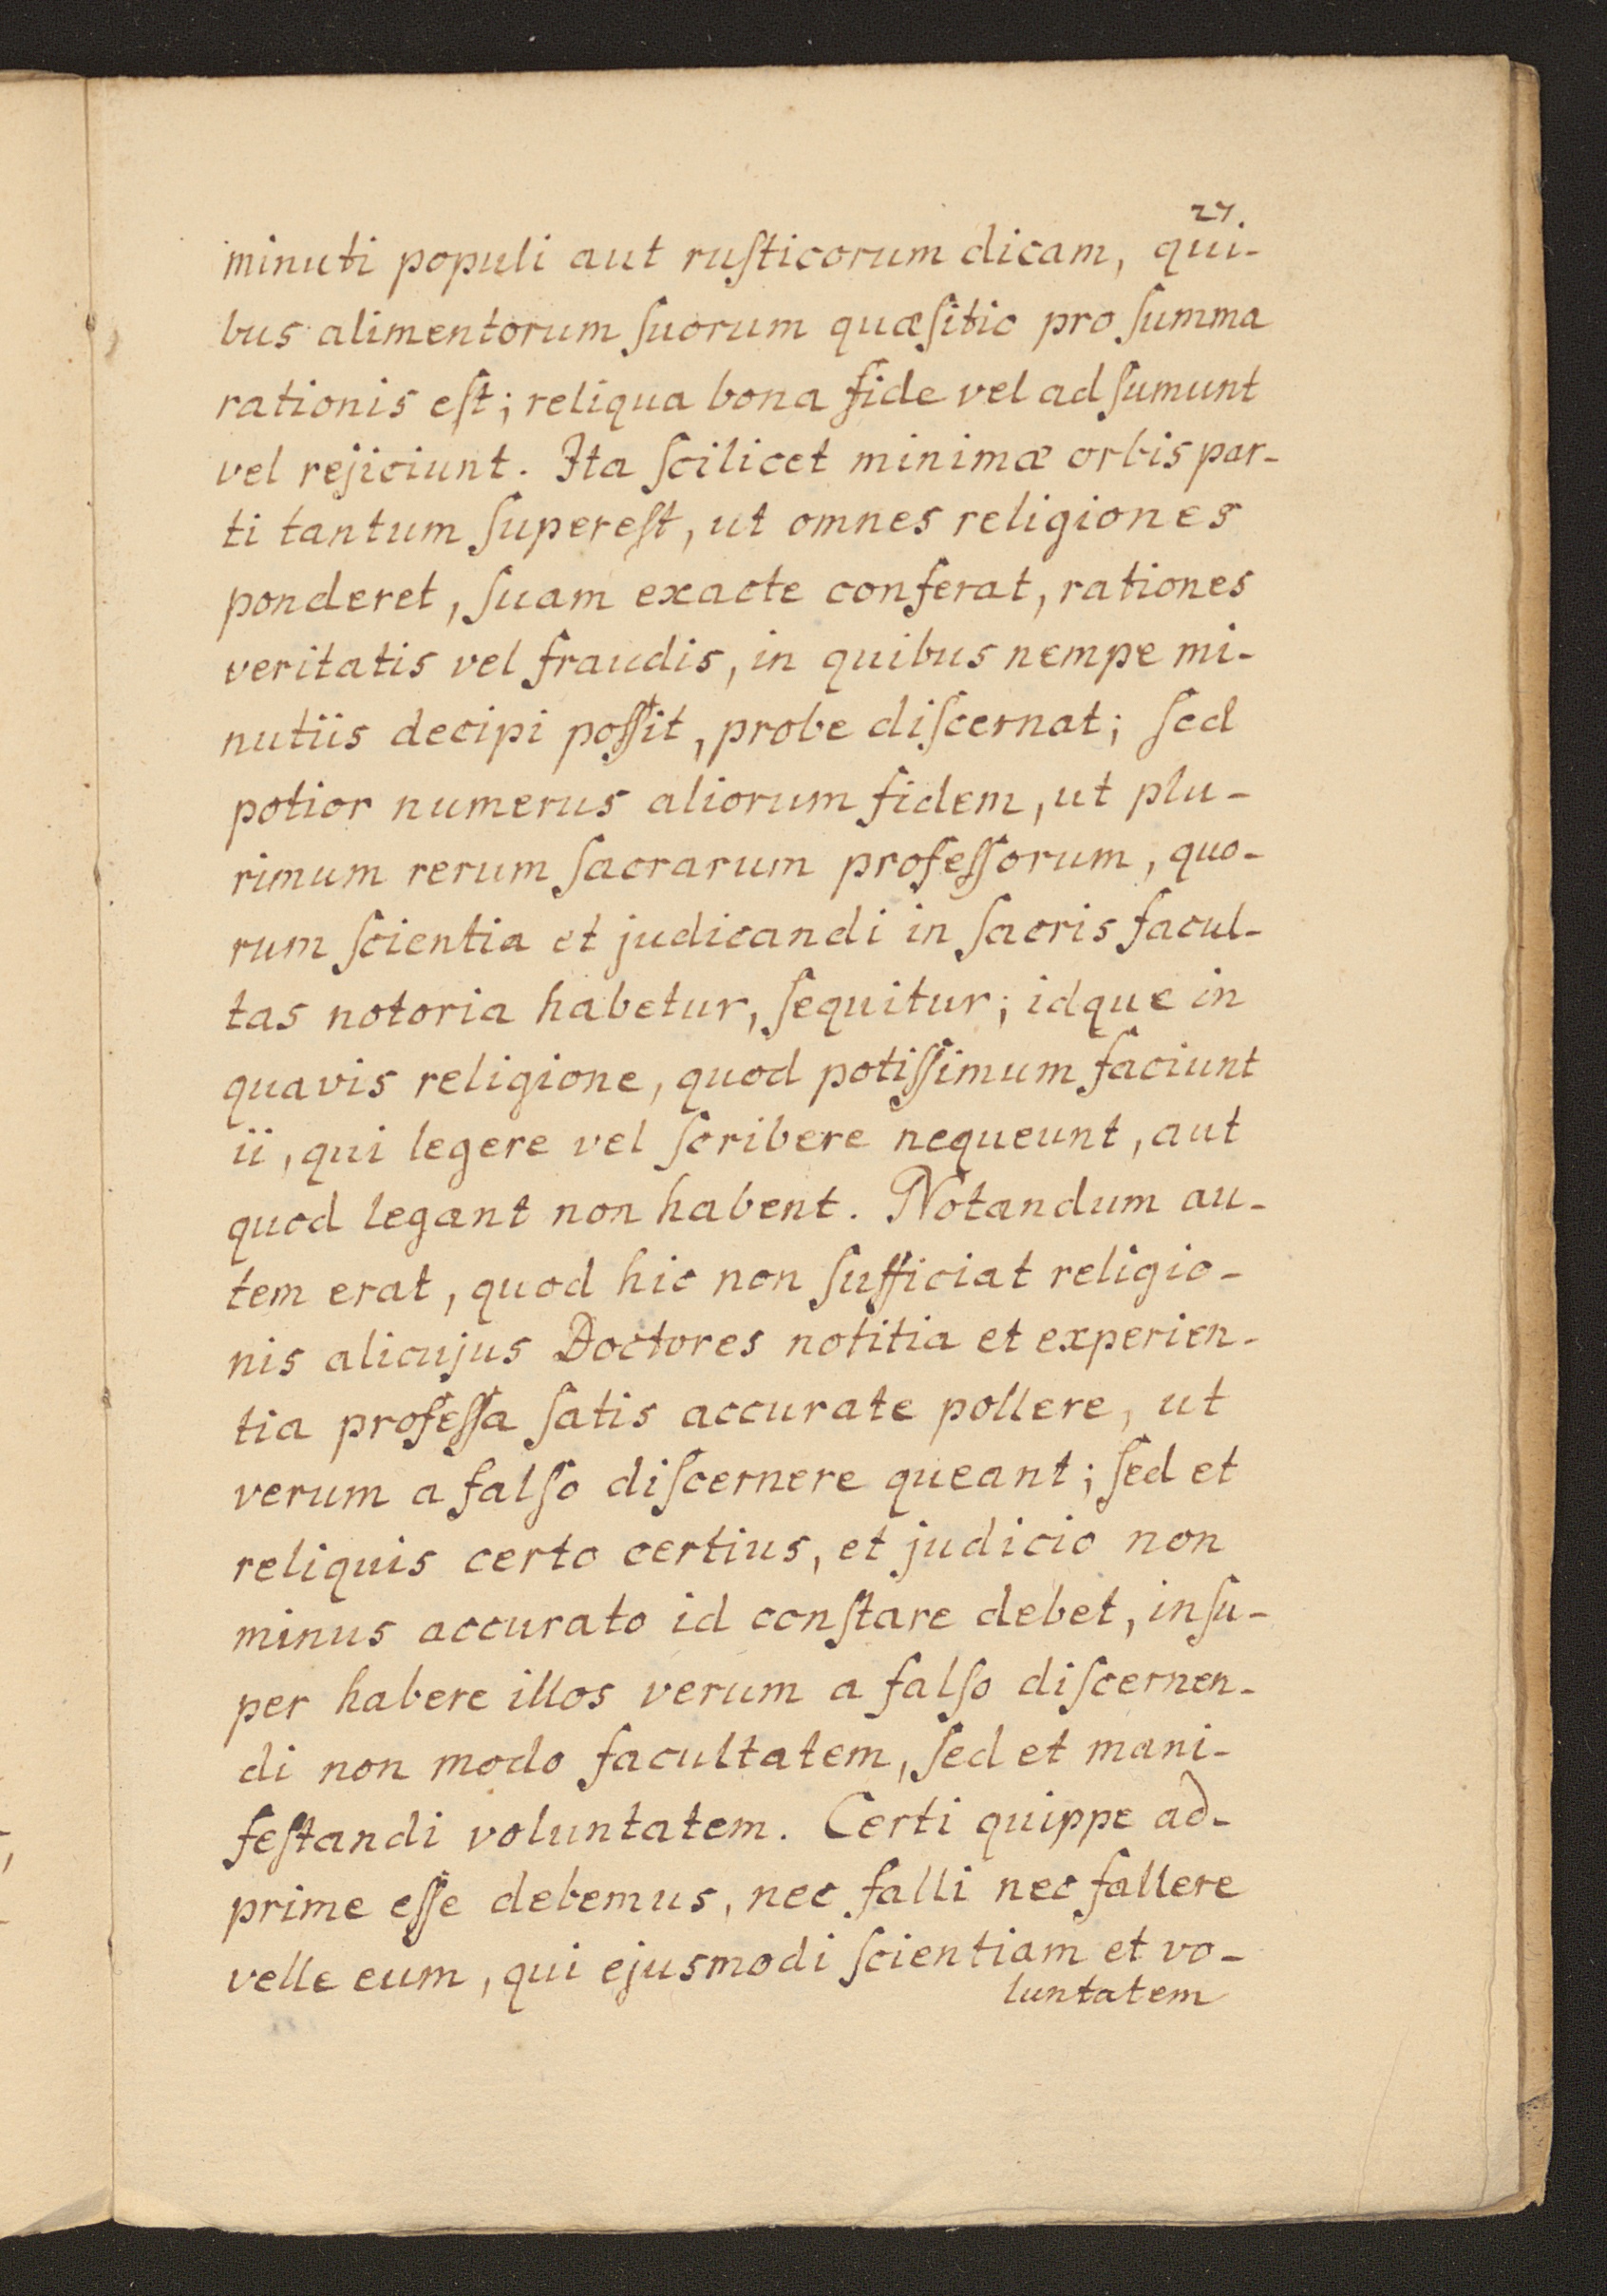 27.
minuti populi aut ruſticorum dicam, qui-
bus alimentorum ſuorum quæſitio pro ſumma
rationis eſt; reliqua bona fide vel adſumunt
vel rejiciunt. Ita ſcilicet minimæ orbis par-
ti tantum ſupereſt, ut omnes religiones
ponderet, ſuam exacte conferat, rationes
veritatis vel fraudis, in quibus nempe mi-
nutiis decipi poſſit, probe diſcernat; ſed
potior numerus aliorum fidem, ut plu-
rimum rerum ſacrarum profeſſorum, quo-
rum ſcientia et judicandi in ſacris facul-
tas notoria habetur, ſequitur; idque in
quavis religione, quod potiſſimum faciunt
ii, qui legere vel ſcribere nequeunt, aut
quod legant non habent. Notandum au-
tem erat, quod hic non ſufficiat religio-
nis alicujus Doctores notitia et experien-
tia profeſſa ſatis accurate pollere, ut
verum a falſo diſcernere queant; ſed et
reliquis certo certius, et judicio non
minus accurato id conſtare debet, inſu-
per habere illos verum a falſo diſcernen-
di non modo facultatem, ſed et mani-
feſtandi voluntatem. Certi quippe ad-
prime eſſe debemus, nec falli nec fallere
velle eum, qui ejusmodi ſcientiam et vo-
luntatem